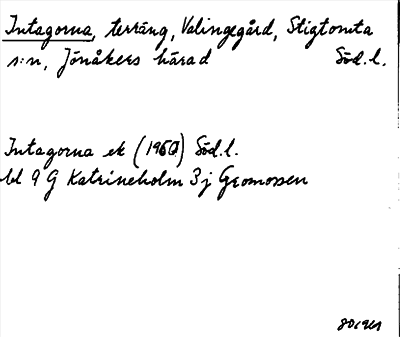 Intagorna, terräng, Valingegård, Stigtomta
s:n, Jönåkers härad Söd.l.
Intagorna ek (1960) Söd.l.
bl 9 G Katrineholm 3 j Gromossen